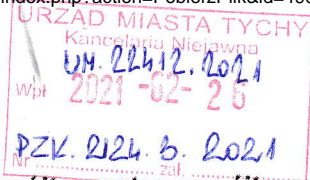 URZĄD MIASTA TYCHY
Kancelaria Niejawna
UM. 22412.2021
Wpł 2021 -02- 26
PZK. 2124. 3. 2021
Nr zał.